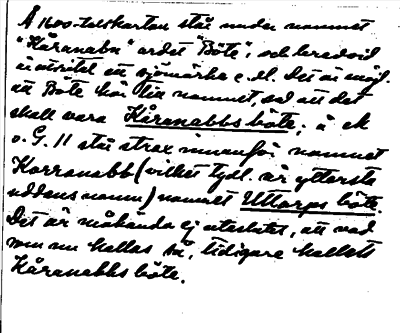 Å 1600-talskartan står under namnet
"Kåranabn" ordet "Böte", och bredvid
är utritat ett sjömärke e. d. Det är möjl.
att Böte hör till namnet, så att det
skall vara Kåranabbs böte; å ek
v. G. 11 står strax innanför namnet
Korranabb (vilket tydl. är yttersta
uddens namn) namnet Uttorps böte.
Det är måhända ej uteslutet, att vad
som nu kallas så, tidigare kallats
Kåranabbs böte.